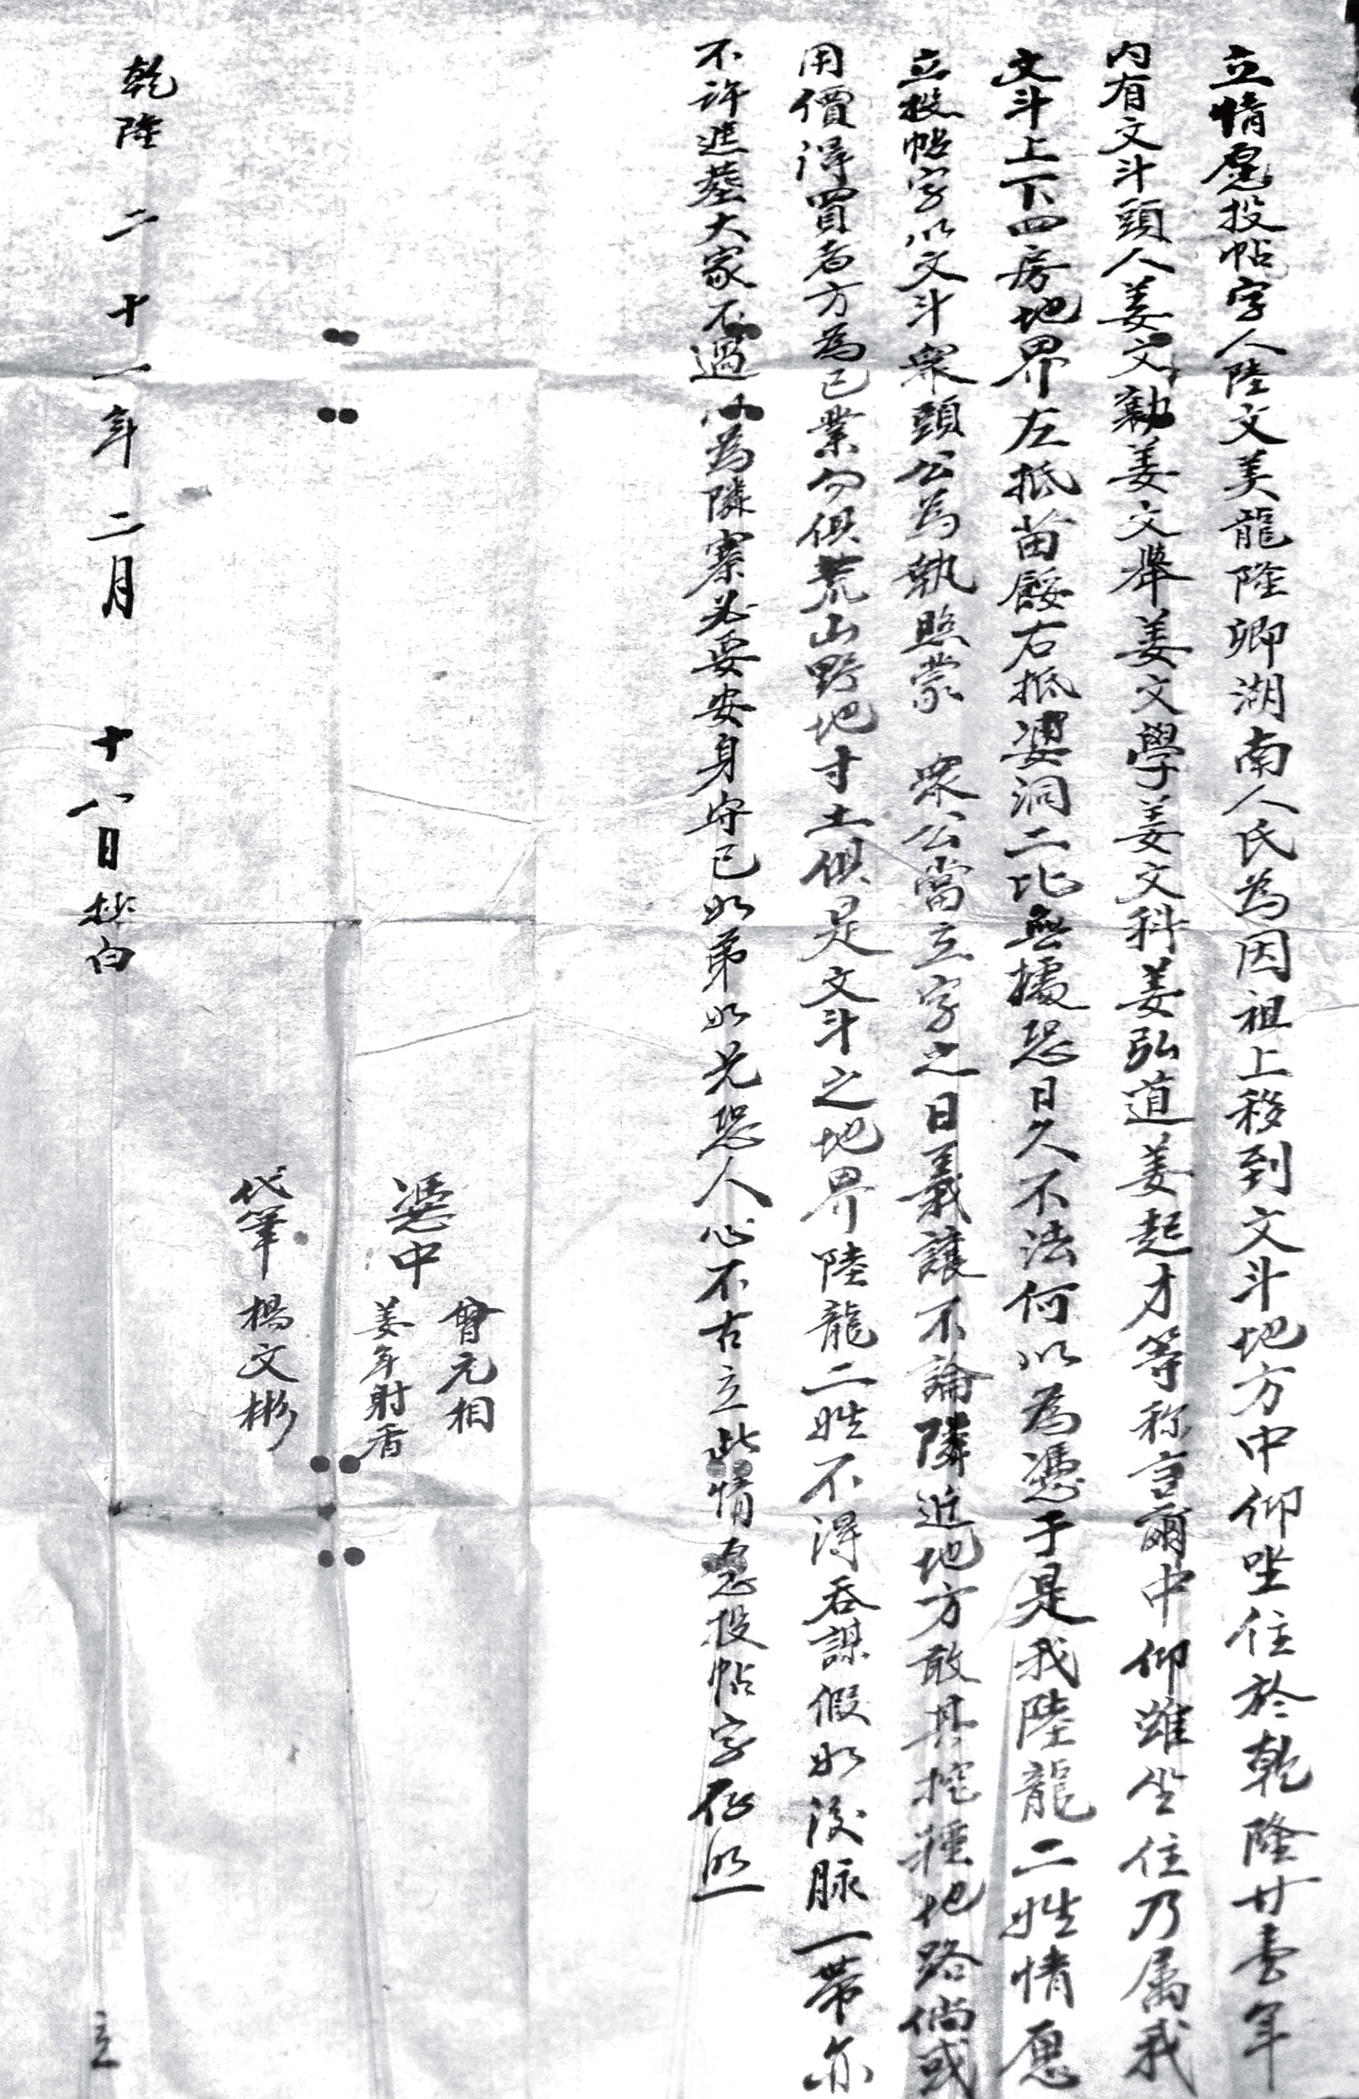 立情愿投帖字人陸文美龍隆卿湖南人民為因祖上移到文斗地方中仰坐住於乾隆廿壹年
内有文斗頭人姜文勷姜文舉姜文學姜文科姜弘道姜起才等称言爾中仰雖坐住乃属我
文斗上下四房地界左抵苗餒右抵婆洞二比無據恐日久不法何以為憑于是我陸龍二姓情愿
立投帖字以文斗衆頭公為執照蒙 衆公當立字之日義讓不論隣近地方敢其挖種地路倘或
用價得買者方為己業勿俱荒山野地寸土俱是文斗之地界陸龍二姓不得吞謀假如後脉一帶亦
不許進塟大家不過以為隣寨必要安身守己如弟如兄恐人心不古立此情愿投帖字存照
憑中 曾元相
姜年射香
代筆 楊文彬
乾隆二十一年二月 十八日 白 立